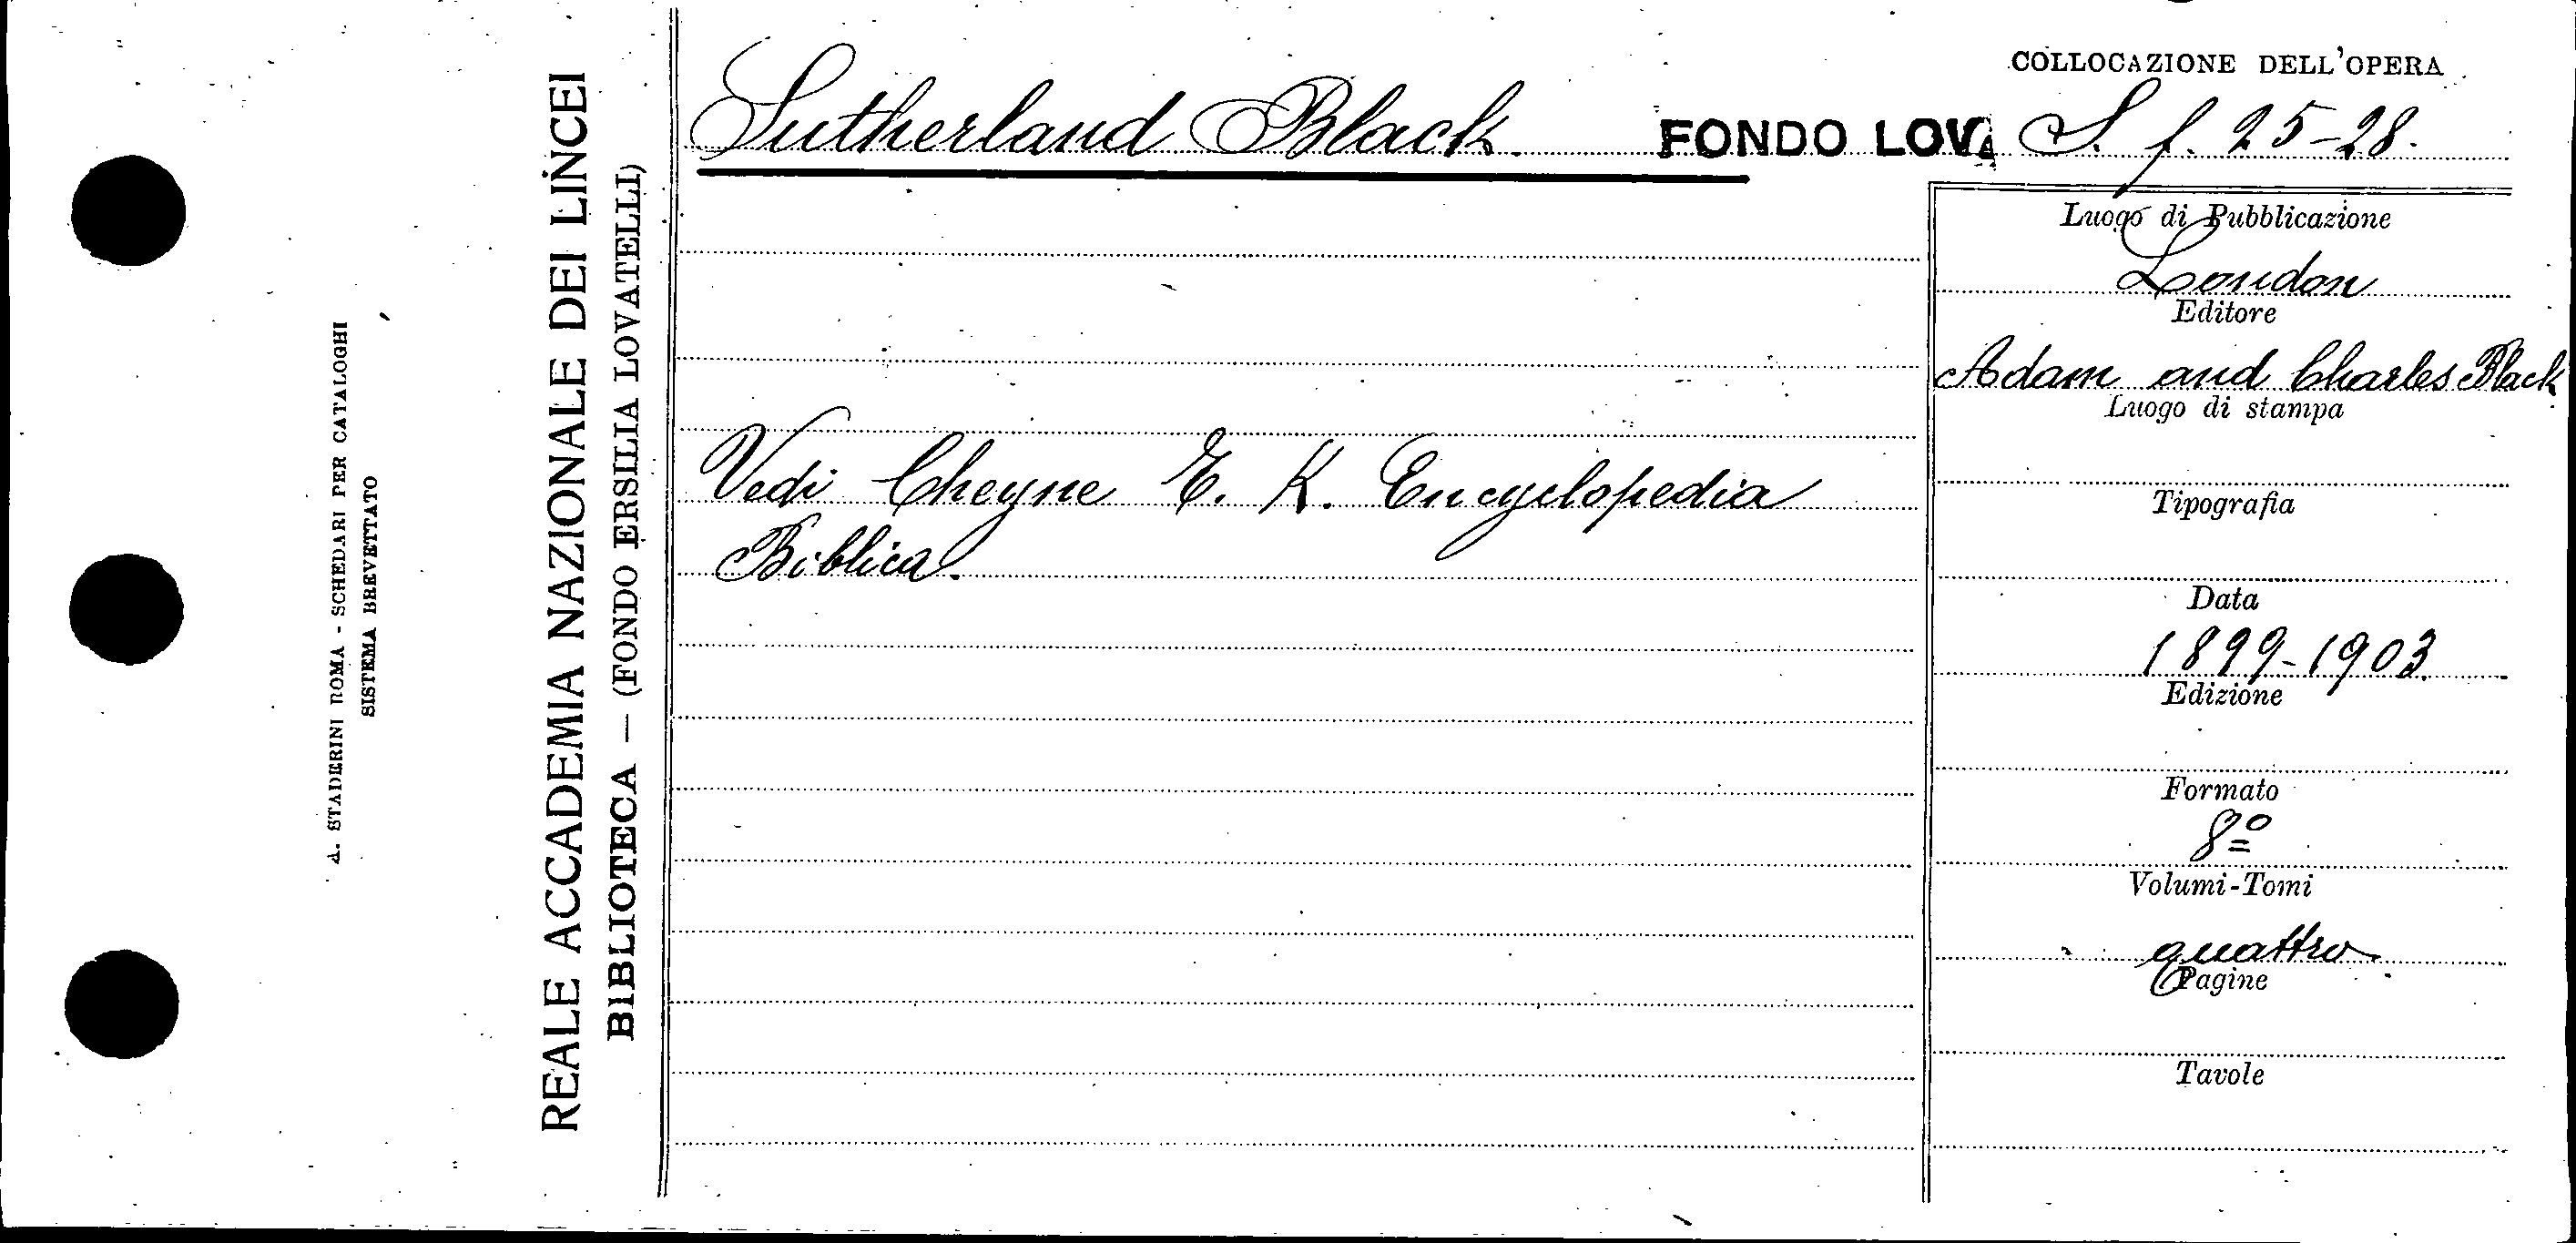 A. STADERINI ROMA - SCHEDARI PER CATALOGHI
SISTEMA BREVETTATO
REALE ACCADEMIA NAZIONALE DEI LINCEI
BIBLIOTECA — (FONDO ERSILIA LOVATELLI)
COLLOCAZIONE DELL'OPERA
Sutherland Black FONDO LOV. S. f. 25-28.
Vedi Cheyne E. K. Encyclopedia
Biblica.
Luogo di Pubblicazione
London
Editore
Adam and Charles Black
Luogo di stampa
Tipografia
Data
1899-1903
Edizione
Formato
8º
Volumi-Tomi
quattro
Pagine
Tavole